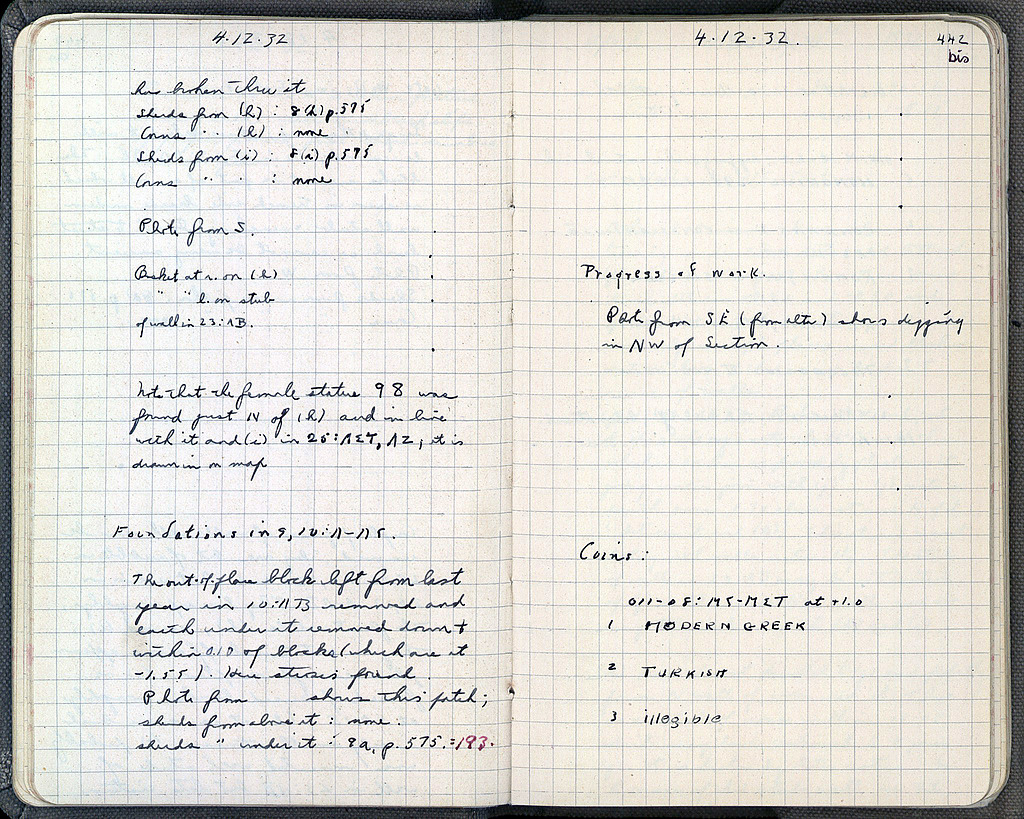 4.12.32
has broken thru it
Sherds from (h) : 8(h) p. 575
Coins " " (h) : none
Sherds from (i) : 8(i) p. 575
Coins " " : none
Photo from S.
Basket at r. on (h)
" " l. on stub
of wall in 23:ΛB.
Note that the female statue 98 was
found just N of (h) and in line
with it and (i) in 25:ΛΣΤ, ΛΖ; it is
drawn in on map
Foundations in 9, 10:Λ-ΛΕ.
The out-of-place block left from last
year in 10:ΛΒ removed and
earth under it removed down to
within 0.10 of blocks (which are at
-1.55). Here stosis found.
Photo from shows this patch;
sherds from above it : none.
sherds " under it : 9a, p. 575. =193.
4.12.32.
442
bis
Progress of work.
Photo from SE (from alta) shows digging
in NW of Section.
Coins:
at +1.0
1 MODERN GREEK
2 TURKISH
3 illegible